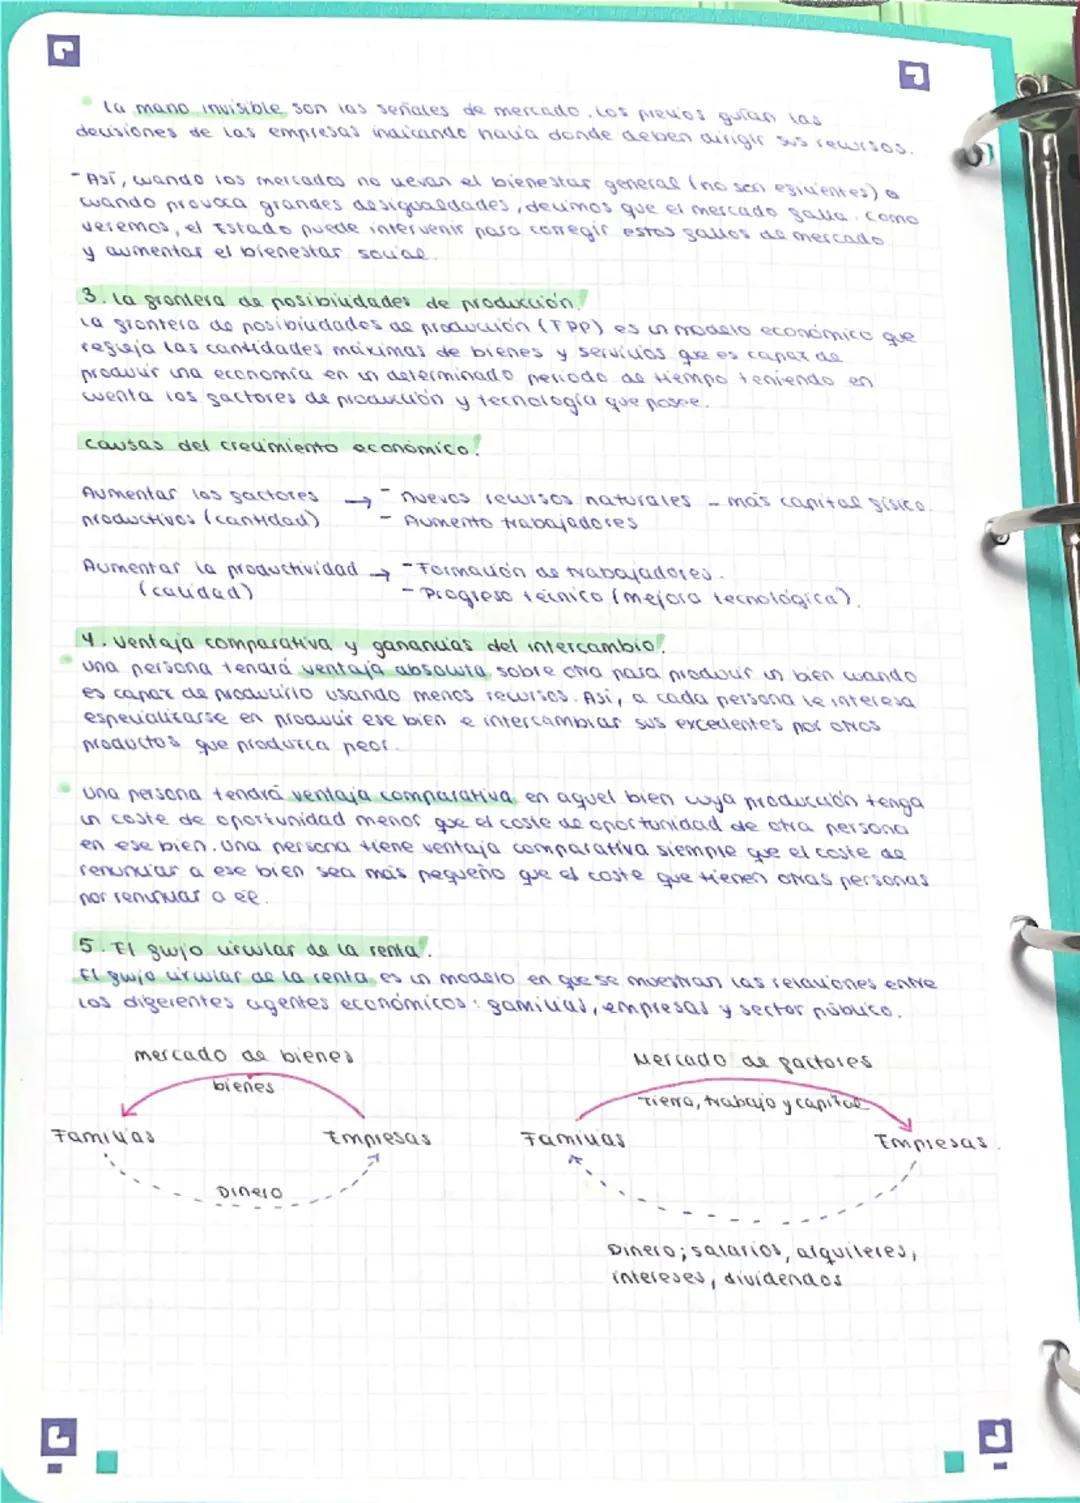 la mano invisible son las señales de mercado. Los precios guían las
decisiones de las empresas indicando hacia donde deben dirigir sus recursos.
- Así, cuando los mercados no llevan el bienestar general (no son eficientes) o
cuando provoca grandes desigualdades, decimos que el mercado falla. Como
veremos, el Estado puede intervenir para corregir estos fallos de mercado
y aumentar el bienestar social.
3. La frontera de posibilidades de producción.
La frontera de posibilidades de producción (FPP) es un modelo económico que
refleja las cantidades máximas de bienes y servicios que es capaz de
producir una economía en un determinado periodo de tiempo teniendo en
cuenta los factores de producción y tecnología que posee.
Causas del crecimiento económico:
Aumentar los factores → - nuevos recursos naturales - más capital físico.
productivos (cantidad) - Aumento trabajadores
Aumentar la productividad → - Formación de trabajadores.
(calidad) - Progreso técnico (mejora tecnológica).
4. Ventaja comparativa y ganancias del intercambio.
Una persona tendrá ventaja absoluta sobre otra para producir un bien cuando
es capaz de producirlo usando menos recursos. Así, a cada persona le interesa
especializarse en producir ese bien e intercambiar sus excedentes por otros
productos que produzca peor.
Una persona tendrá ventaja comparativa en aquel bien cuya producción tenga
un coste de oportunidad menor que el coste de oportunidad de otra persona
en ese bien. Una persona tiene ventaja comparativa siempre que el coste de
renunciar a ese bien sea más pequeño que el coste que tienen otras personas
por renunciar a él.
5. El flujo circular de la renta.
El flujo circular de la renta es un modelo en que se muestran las relaciones entre
los diferentes agentes económicos: familias, empresas y sector público.
mercado de bienes
bienes
Familias Empresas
Dinero
Mercado de factores
Tierra, trabajo y capital
Familias Empresas.
Dinero; salarios, alquileres,
intereses, dividendos